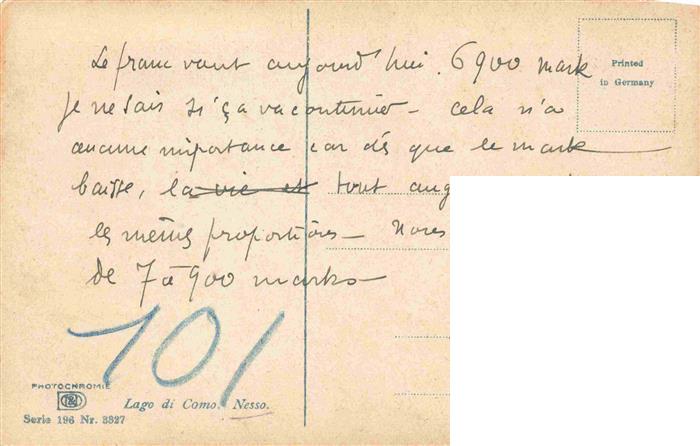 Le franc vaut aujourd'hui. 6900 mark
je ne sais si ça va continuer – cela n'a
aucune importance car dés que le mark
baisse, la vie et tout aug
les mêmes proportions –
de 7 à 900 marks –
101
Printed
in Germany
PHOTOCHROMIE
Lago di Como. Nesso.
Serie 196 Nr. 3327